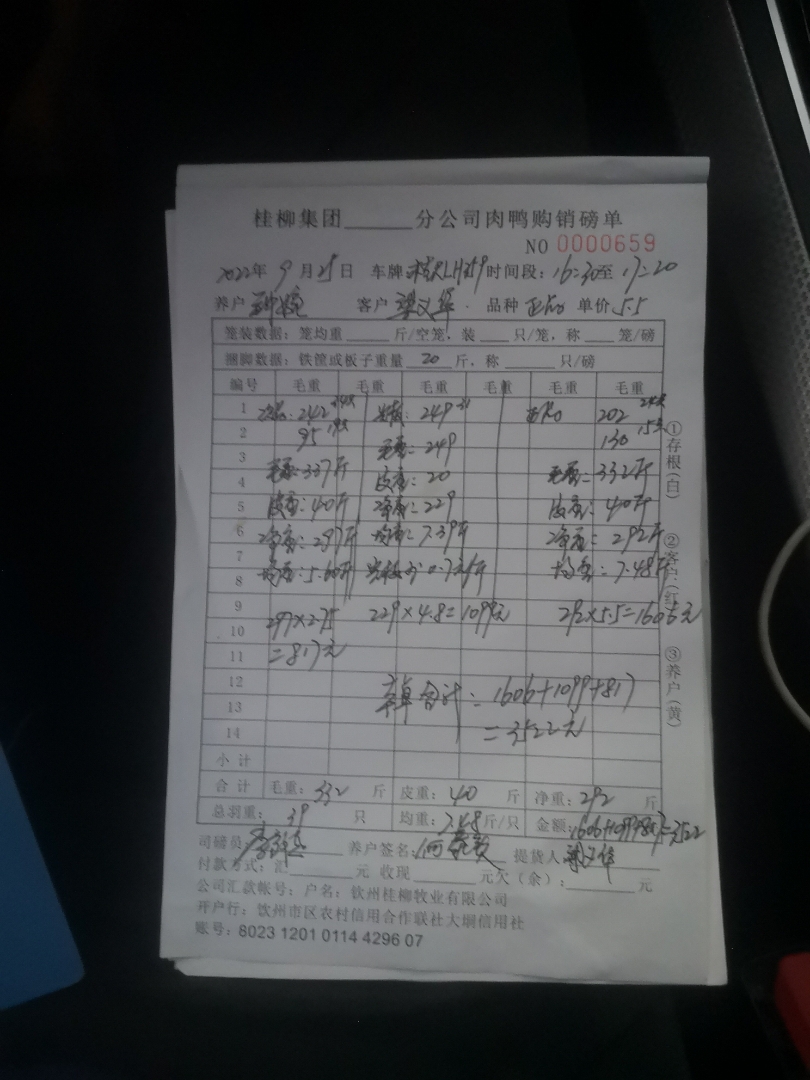 桂柳集团______分公司肉鸭购销磅单
NO 0000659
2022年 9月25日 车牌 时间段：16:30至17:20
养户 客户 梁文华 品种 单价 5.5
笼装数据：笼均重____斤/空笼，装____只/笼，称____笼/磅
捆脚数据：铁筐或板子重量 20 斤，称____只/磅
编号 毛重 毛重 毛重 毛重 毛重 毛重
1 242 249 202
2 95 130
3 249
4 毛重：337斤 皮重：20 毛重：332斤
5 皮重：40斤 净重：229 皮重：40斤
6 净重：297斤 均重：7.39斤 净重：292斤
7
8 均重：5.60斤 均重：7.48斤
9 297×2.75 229×4.8=1099元 292×5.5=1606元
10
11 =817元
12 合计：1606+1099+817
13 =3522元
14
小计
合计 毛重：332 斤 皮重：40 斤 净重：292 斤
总羽重：39 只 均重：7.48斤/只 金额：1606+1099+817=3522
司磅员： 养户签名： 提货人：梁文华
付款方式：汇______元 收现______元欠（余）：______元
公司汇款帐号：户名：钦州桂柳牧业有限公司
开户行：钦州市区农村信用合作联社大垌信用社
账号：8023 1201 0114 4296 07
①存根（白）
②客户（红）
③养户（黄）